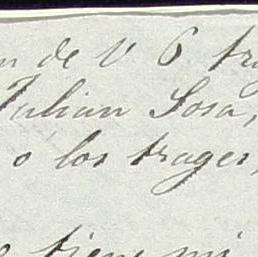 de V 6
Julian Sosa,
o los trages,
tiene mi